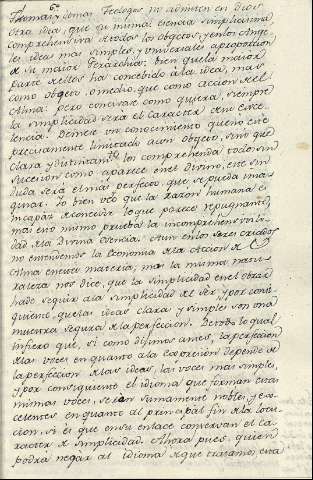 6.
Thomas, y demas Teologos no admiten en Dios
otra idea, que su misma esencia simplicisima,
comprehensiva de todos los objetos, y en los Ange-
les ideas mas simples, y universales a proporcion
de su maior Gerarchia: bien que la maior
parte de ellos ha concebido à la idea, mas
como objeto, ô medio, que como accion del
Alma. pero concivase como quiera, siempre
la simplicidad serà el caracter de su exce-
lencia. Demos un conocimiento que no esté
precisamente limitado a un objeto, sino que
clara y distintam.te los comprehenda todos sin
succesion como aparece en el Divino, este sin
duda serà el mas perfecto que se pueda ima-
ginar. Yo bien veo que la razon humana es
incapaz de concebir lo que parece repugnante,
mas esto mismo prueba la incomprehensivili-
dad de la Divina Esencia. Aun en los seres criados
no entendemos la economia de la Accion de el
Alma en esta materia; mas la misma natu-
raleza nos dice, que la simplicidad en el obrar
hade seguir à la simplicidad de el ser, y por consi-
guiente, que las ideas claras y simples son una
muestra segura de la perfeccion. De todo lo qual
infiero que, si como diximos antes, la perfeccion
de las voces en quanto a la expresion depende de
la perfeccion de las ideas, las voces mas simples,
y por consiguiente el idioma que forman estas
mismas voces, seràn sumamente nobles, y ex-
celentes en quanto al principal fin de la locu-
cion, si es que en su enlace conservan el ca-
racter de simplicidad. Ahora pues, quien
podrà negar al idioma de que tratamos, esta